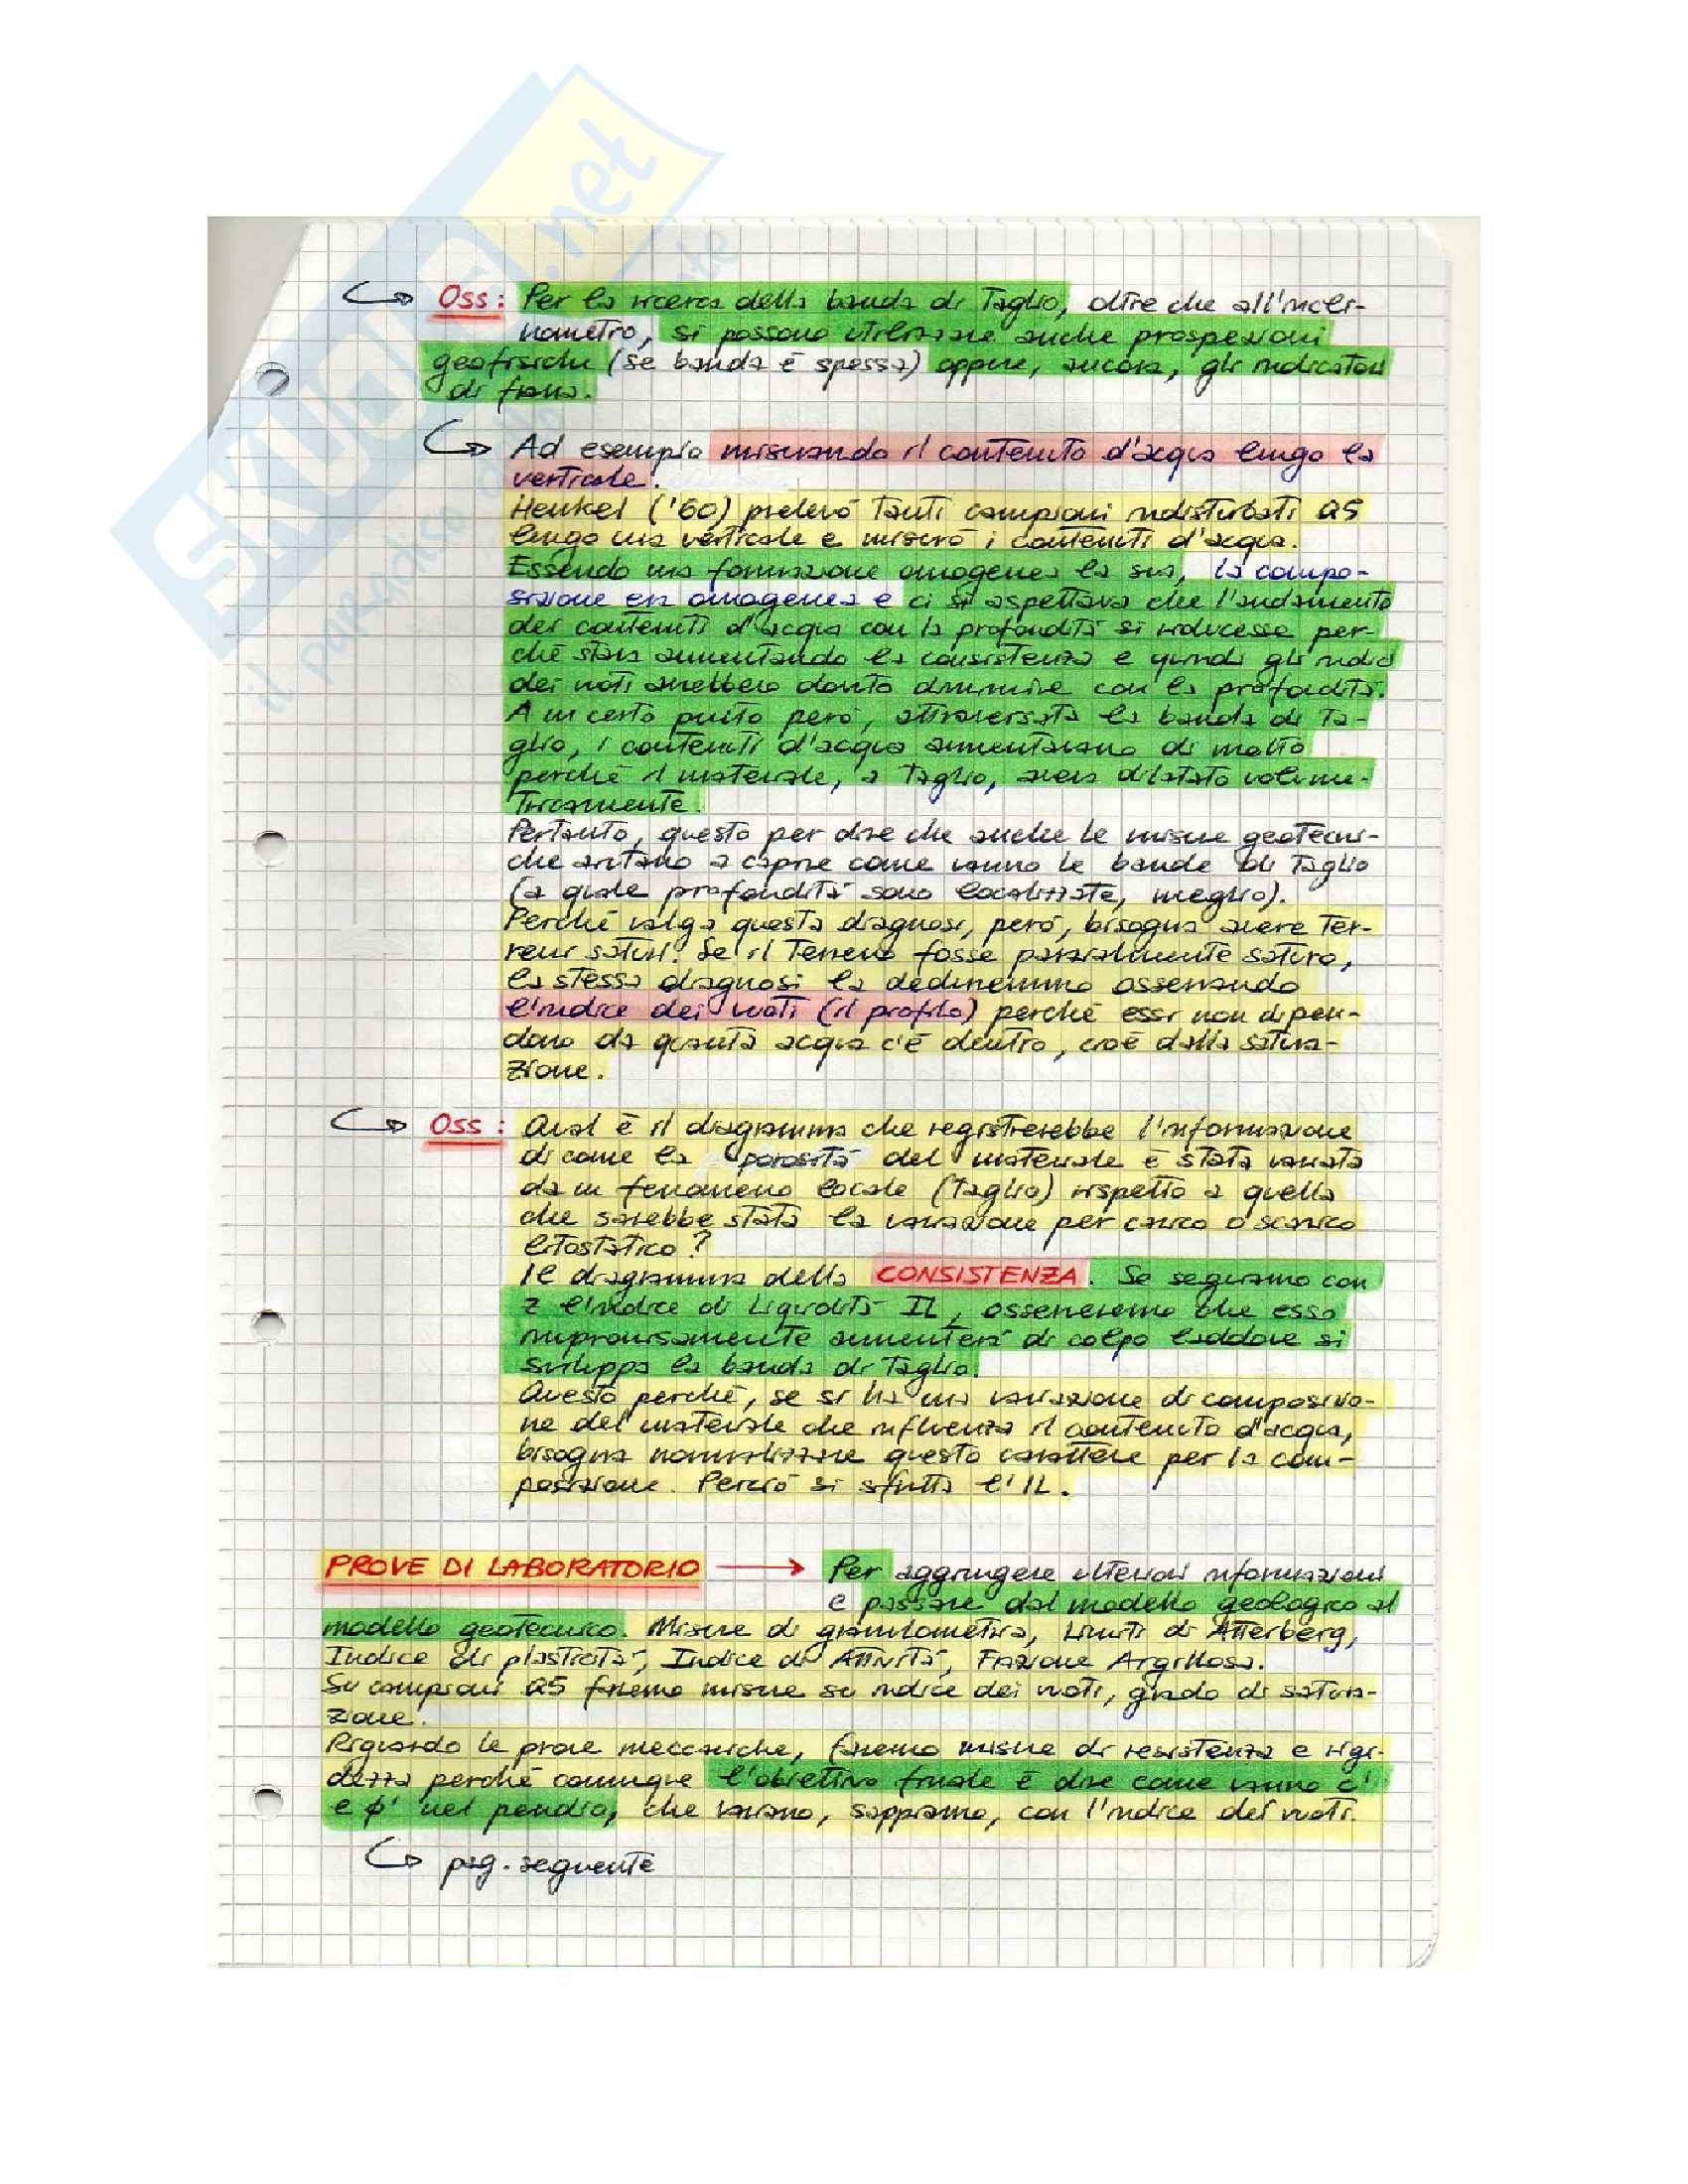 SKUOLA.net
il paradiso dello studente
Oss: Per la ricerca della banda di Taglio, oltre che all'incli-
nometro, si possono utilizzare anche prospezioni
geofisiche (se banda è spessa) oppure, ancora, gli indicatori
di frana.
Ad esempio misurando il contenuto d'acqua lungo la
verticale.
Henkel ('60) prelevò Tanti campioni indisturbati Q5
lungo una verticale e misurò i contenuti d'acqua.
Essendo una formazione omogenea la sua, la compo-
sizione era omogenea e ci si aspettava che l'andamento
dei contenuti d'acqua con la profondità si riducesse per-
ché stava aumentando la consistenza e quindi gli indici
dei vuoti avrebbero dovuto diminuire con la profondità.
A un certo punto però, attraversata la banda di Ta-
glio, i contenuti d'acqua aumentavano di molto
perché il materiale, a Taglio, aveva dilatato volume-
Tricamente.
Pertanto, questo per dire che anche le misure geotecni-
che aiutano a capire come vanno le bande di Taglio
(a quale profondità sono localizzate, meglio).
Perché valga questa diagnosi, però, bisogna avere Ter-
reni saturi. Se il Terreno fosse parzialmente saturo,
la stessa diagnosi la dedurremmo osservando
l'indice dei vuoti (il profilo) perché essi non dipen-
dono da quanta acqua c'è dentro, cioè dalla satura-
zione.
Oss: Qual è il diagramma che registrerebbe l'informazione
di come la porosità del materiale è stata variata
da un fenomeno locale (Taglio) rispetto a quella
che sarebbe stata la variazione per carico o scarico
litostatico?
Il diagramma della CONSISTENZA. Se seguiamo con
z l'indice di Liquidità IL, osserveremo che esso
improvvisamente aumenterà di colpo laddove si
sviluppa la banda di Taglio.
Questo perché, se si ha una variazione di composizio-
ne del materiale che influenza il contenuto d'acqua,
bisogna normalizzare questo carattere per la com-
posizione. Perciò si sfrutta l'IL.
PROVE DI LABORATORIO → Per aggiungere ulteriori informazioni
e passare dal modello geologico al
modello geotecnico. Misure di granulometria, Limiti di Atterberg,
Indice di plasticità, Indice di Attività, Frazione Argillosa.
Su campioni Q5 faremo misure su indice dei vuoti, grado di satura-
zione.
Riguardo le prove meccaniche, faremo misure di resistenza e rigi-
dezza perché comunque l'obiettivo finale è dire come vanno c'
e φ' nel pendio, che variano, sappiamo, con l'indice dei vuoti.
pag. seguente